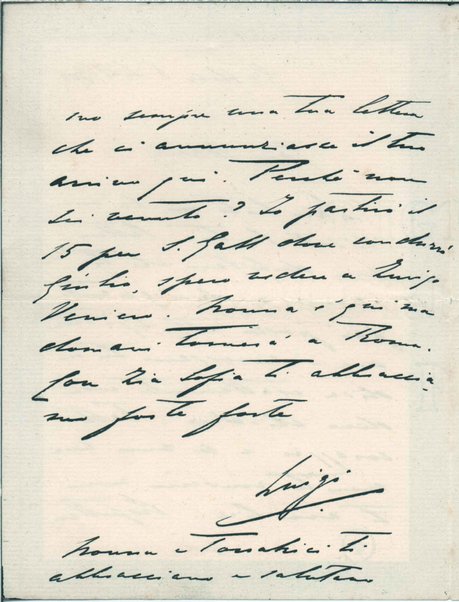 vo sempre una tua lettera
che ci annunziasse il tuo
arrivo qui. Perchè non
sei venuto? Io partirò il
15 per S. Gall dove condurrò
Giulio, spero vedere a Zurigo
Veniero. Nonna è qui ma
domani tornerà a Roma.
Con Zia Sofia ti abbraccia-
mo forte forte
Luigi
Nonna e ti
abbracciano e salutano